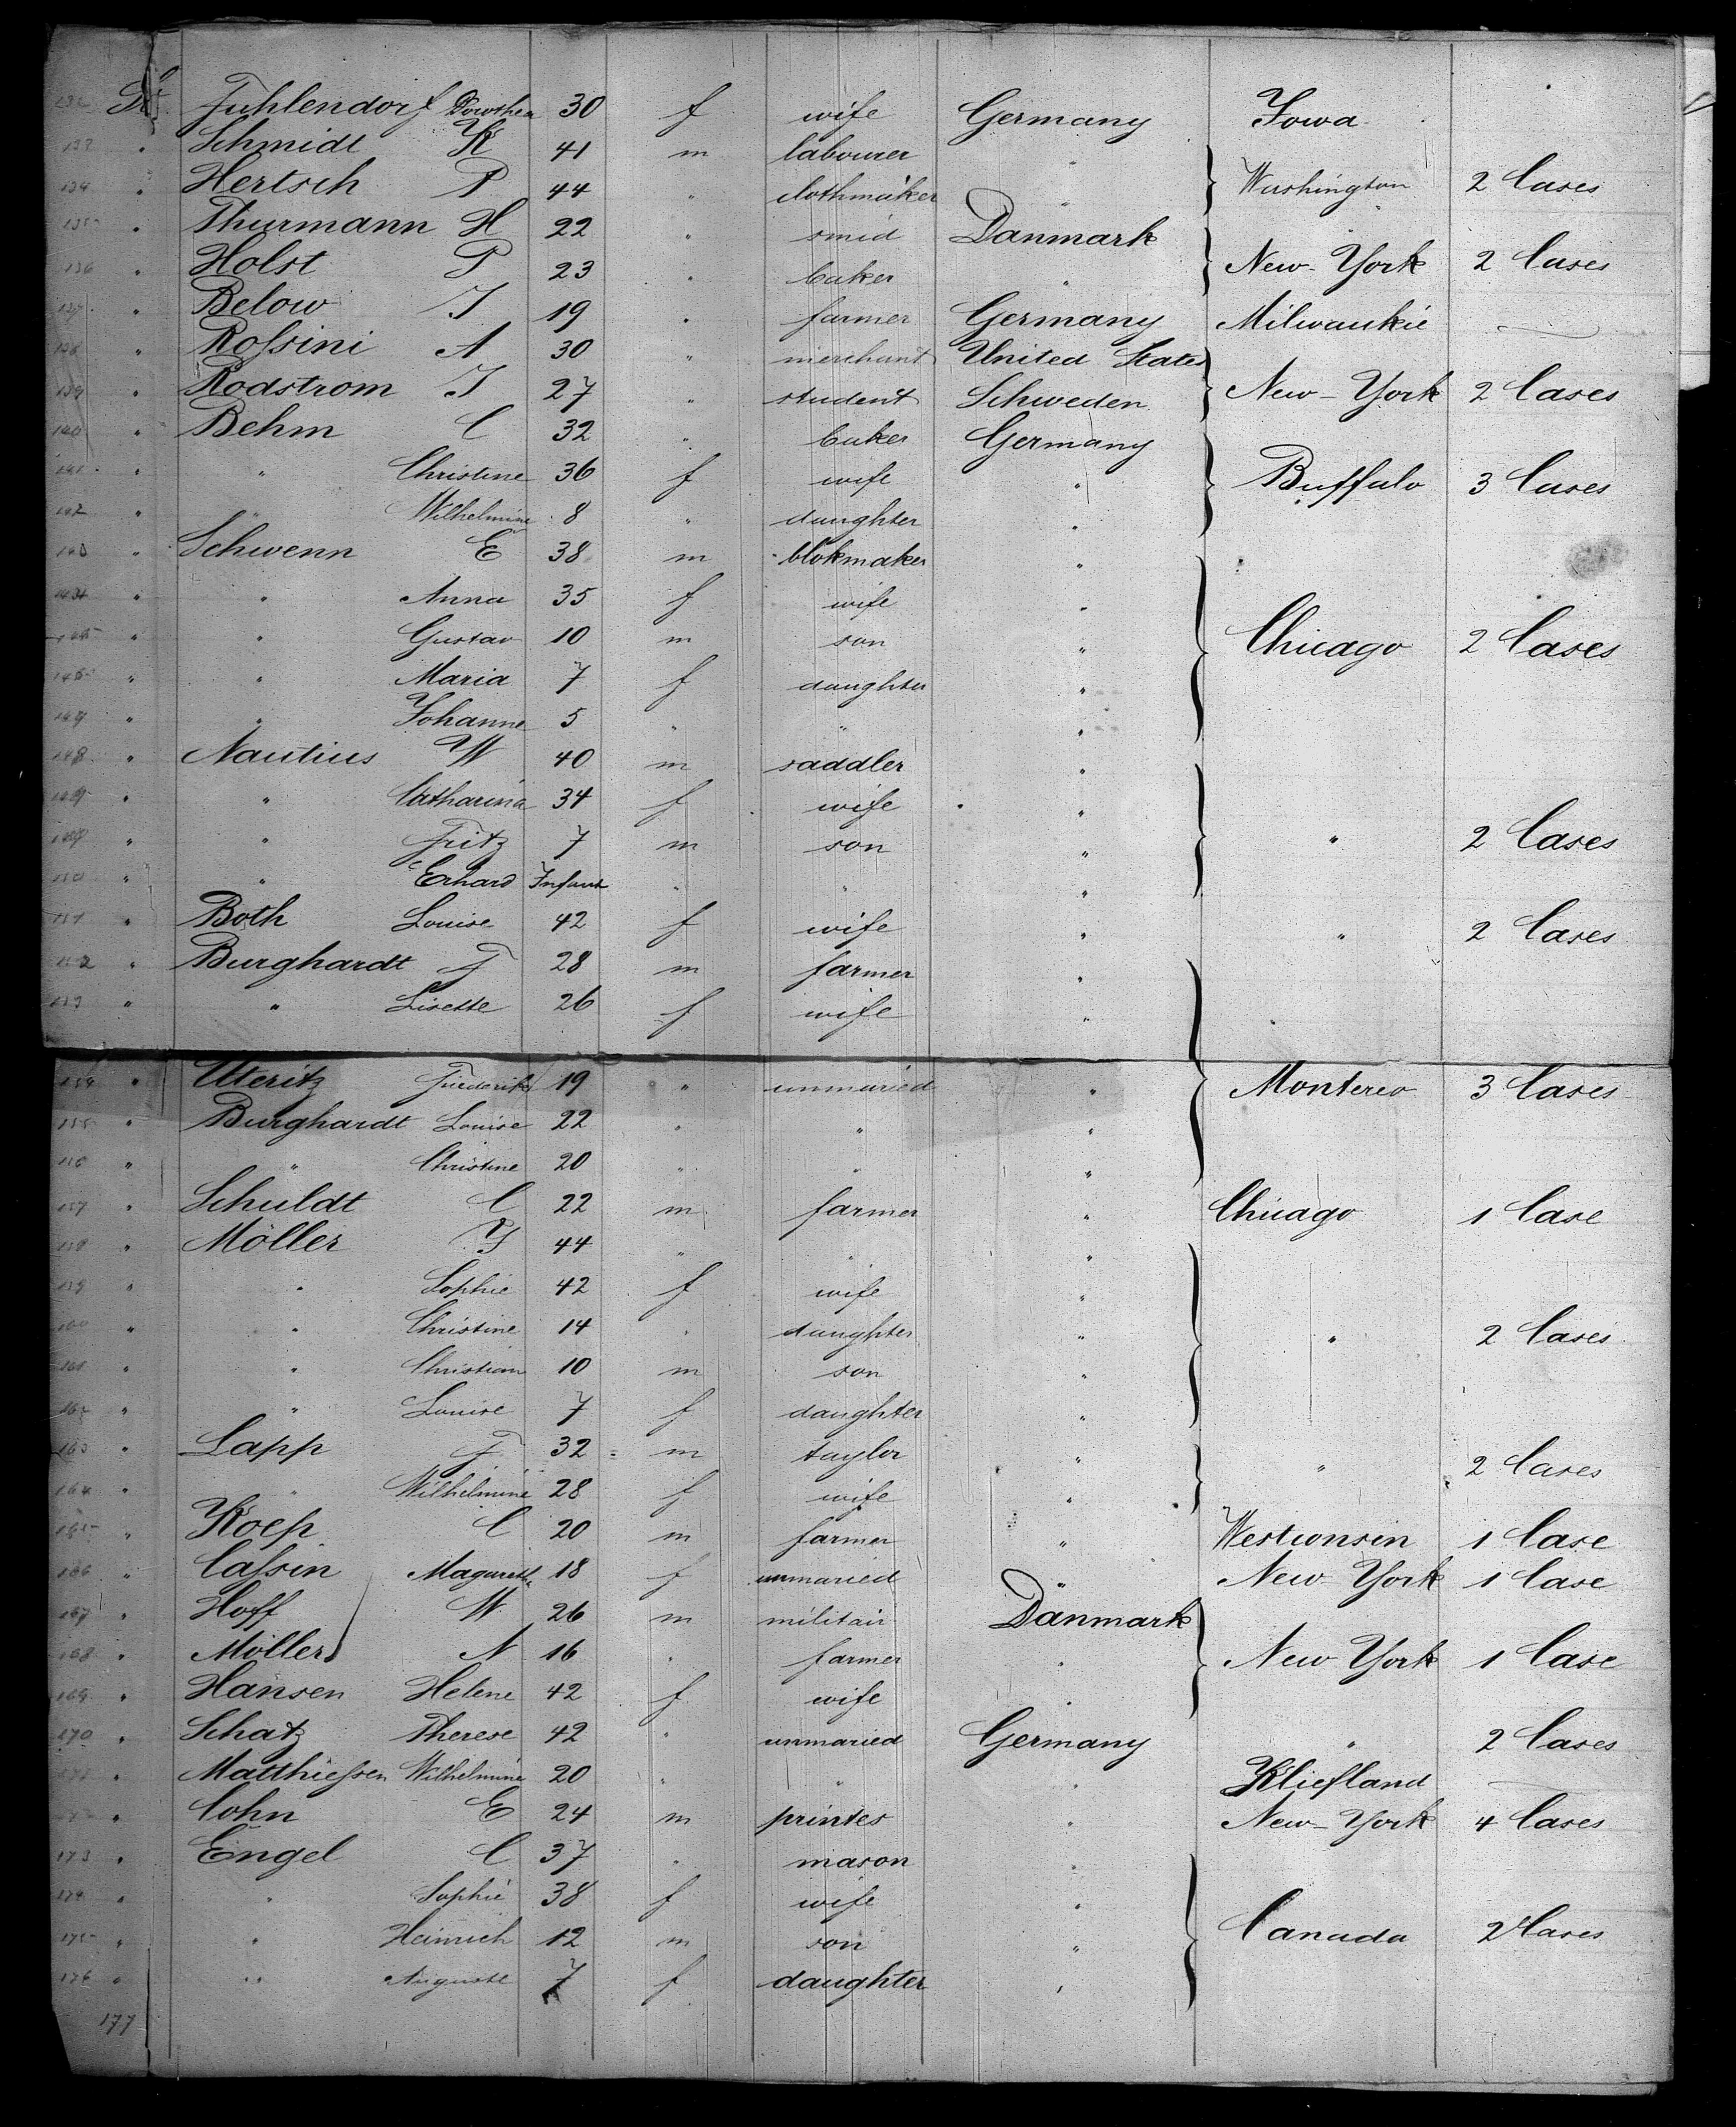 Fuhlendorf Dorothea 30 f wife Germany Iowa
133 " Schmidt K 41 m labourer "
134 " Hertsch P 44 " clothmaker " Washington 2 Cases
135 " Thurmann H 22 " smid Danmark "
136 " Holst P 23 " baker " New-York 2 Cases
137 " Below J 19 " farmer Germany Milwaukie —
138 " Roſsini A 30 " merchant United States
139 " Rodstrom J 27 " student Schweden New-York 2 Cases
140 " Behm C 32 " baker Germany
141 " " Christine 36 f wife " Buffalo 3 Cases
142 " " Wilhelmine 8 " daughter "
143 " Schwenn E 38 m blokmaker "
" " Anna 35 f wife "
145 " " Gustav 10 m son " Chicago 2 Cases
146 " " Maria 7 f daughter "
147 " " Johanne 5 " " "
148 " Nautius W 40 m saddler "
149 " " Catharina 34 f wife "
" " Fritz 7 m son " " 2 Cases
150 " " Erhard Infant " " "
151 " Both Louise 42 f wife " " 2 Cases
152 " Burghardt F 28 m farmer "
153 " " Lisette 26 f wife "
154 " Uteritz Friederike 19 " unmaried " Montereo 3 Cases
155 " Burghardt Louise 22 " " "
156 " " Christine 20 " " "
157 " Schuldt C 22 m farmer " Chicago 1 Case
158 " Möller J 44 " " "
159 " " Sophie 42 f wife "
160 " " Christine 14 " daughter " " 2 Cases
161 " " Christian 10 m son "
162 " " Louise 7 f daughter "
163 " Lapp F 32 m taylor " " 2 Cases
164 " " Wilhelmine 28 f wife "
165 " Koep C 20 m farmer " Westconsin 1 Case
166 " Caſsin Magarethe 18 f unmaried " New-York 1 Case
167 " Hoff W 26 m militair Danmark
168 " Möller N 16 " farmer " New York 1 Case
169 " Hansen Helene 42 f wife "
170 " Schatz Therese 42 " unmaried Germany " 2 Cases
" Matthieſsen Wilhelmine 20 " " " Kliefland —
" Cohn E 24 m printer " New-York 4 Cases
173 " Engel C 37 " mason "
174 " " Sophie 38 f wife "
175 " " Heinrich 12 m son " Canada 2 Cases
176 " " Auguste 7 f daughter "
177